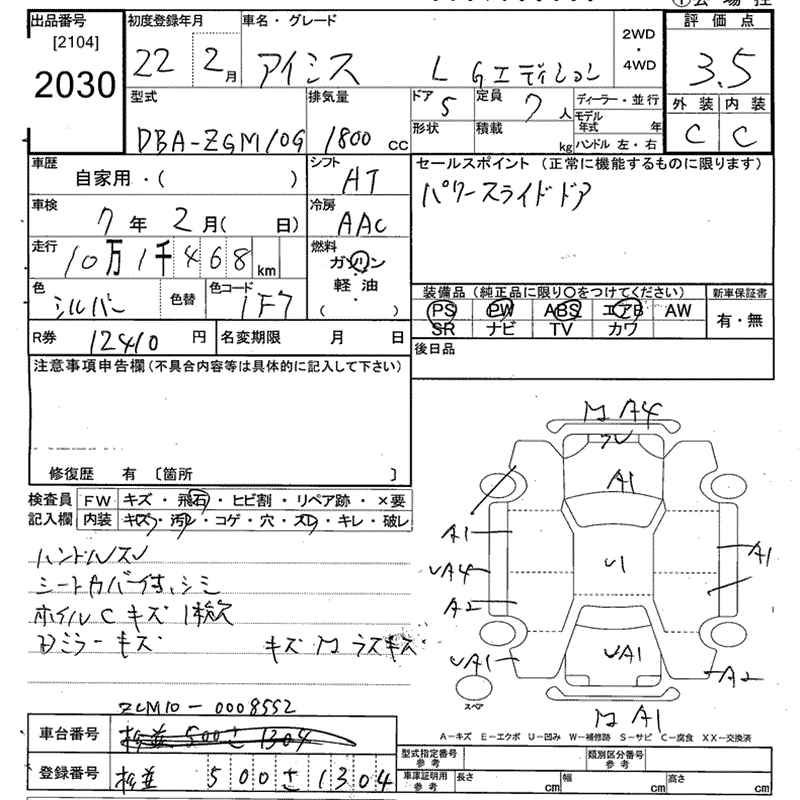 出品番号 初度登録年月 車名・グレード 2WD ・ 4WD 評価点
[2104]
2030 22 2月 アイシス L Gエディション 3.5
型式 排気量 ドア 5 定員 7人 ディーラー・並行 外装 内装
DBA-ZGM10G 1800cc 形状 積載 kg モデル年式 年 C C
ハンドル 左・右
車歴 自家用・( ) シフト AT セールスポイント(正常に機能するものに限ります)
車検 7年 2月( 日) 冷房 AAC パワースライドドア
走行 10万1千468km 燃料 ガソリン
軽油
( )
色 シルバー 色替 色コード 1F7 装備品(純正品に限り○をつけてください) 新車保証書
PS PW ABS エアB AW 有・無
SR ナビ TV カワ
R券 12410円 名変期限 月 日 後日品
注意事項申告欄(不具合内容等は具体的に記入して下さい)
修復歴 有 〔箇所 〕
検査員 FW キズ・飛石・ヒビ割・リペア跡・×要
記入欄 内装 キズ・汚レ・コゲ・穴・スレ・キレ・破レ
ハンドルスレ
シートカバー付、シミ
ホイルCキズ
ミラーキズ キズ
M A4
A1
A1 U1 A1
UA4
A2
UA1 UA1 A2
スペア
M A1
A-キズ E-エクボ U-凹み W-補修跡 S-サビ C-腐食 XX-交換済
ZGM10-0008552
車台番号 500さ1304
登録番号 500さ1304
型式指定番号 参考 類別区分番号 参考
車庫証明用 参考 長さ cm 幅 cm 高さ cm